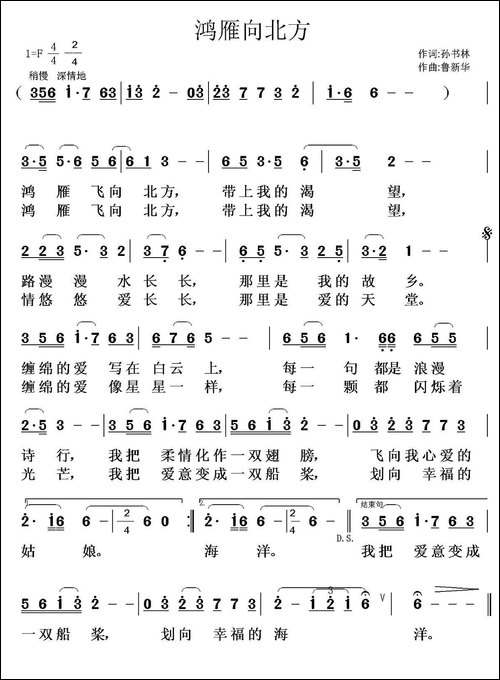 鸿雁向北方
1=F 4/4 2/4
作词:孙书林
稍慢 深情地
作曲:鲁新华
( 356 i·7 63 | i3 2 - 0 | 23 7 7 3 2 | i·6 6 - - )
3·5 5·6 5 6 | 6 1 3 - - | 6 5 3·5 6 | 3·5 - - |
鸿 雁 飞向 北方, 带上我的 渴 望,
鸿 雁 飞向 北方, 带上我的 渴 望,
2 2 3 5· 3 | 3 7 6 - - | 6 5 5 5 3 5 | 3·2 1 - - |
路漫 漫 水长 长, 那里是 我的 故 乡。
情悠 悠 爱长 长, 那里是 爱的 天 堂。
3 5 6 i·7 6 3 | i 3 7 6 - - | 6 5 6 1· 6 6 | 6 5 1 3 |
缠绵的爱 写在 白云 上, 每一 句 都是 浪漫
缠绵的爱 像星 星一 样, 每一 颗 都 闪烁着
2· 5 3 - | 3 5 6 i·7 6 3 | 5 6 i 3 2 - | 0 3 2 3 7 3 |
诗 行, 我把 柔情化作 一双翅 膀, 飞向我心爱的
光 芒, 我把 爱意变成 一双船 桨, 划向 幸福的
1. 2· i6 | 6 - 2/4 6 6 0 :‖ 2. 2· i6 | 6 - 2/4 6 - ‖ 结束句 3 5 6 i·7 6 3
D.S.
姑 娘。 海 洋。 我把 爱意变成
5 6 i 3 2 - - | 0 3 2 3 7 3 | 2 - i 2 i 6 | 6 - - - ‖
一双船 桨, 划向 幸福的 海 洋。